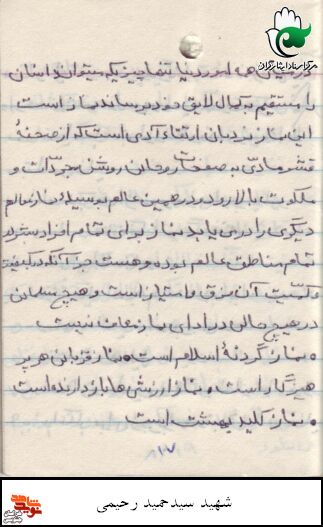 مرکز اسناد ایثارگران
در میان همه امور دنیا تنها چیزیکه میتواند انسان
را مستقیم به کمال لایق خود برساند نماز است
این نماز نردبان ارتقاء آدمی است که از صحنهٔ
قشر مادی به صفحات روحانی روشن مجردات و
ملکوت بالا رود و در همین عالم بوسیلهٔ نماز عالم
دیگری را دریابد نماز برای تمام افراد بشر در
تمام مناطق عالم بوده و هست جز آنکه در کیفیت
و کمیت آن فرق و امتیاز است و هیچ مسلمانی
در هیچ حالی در ادای نماز معاف نیست
• نماز گردنهٔ اسلام است • نماز قربانی هر پر
هیزگار است • نماز از زشتی ها بازدارنده است
• نماز کلید بهشت است
شهید سیدحمید رحیمی
نوید شاهد